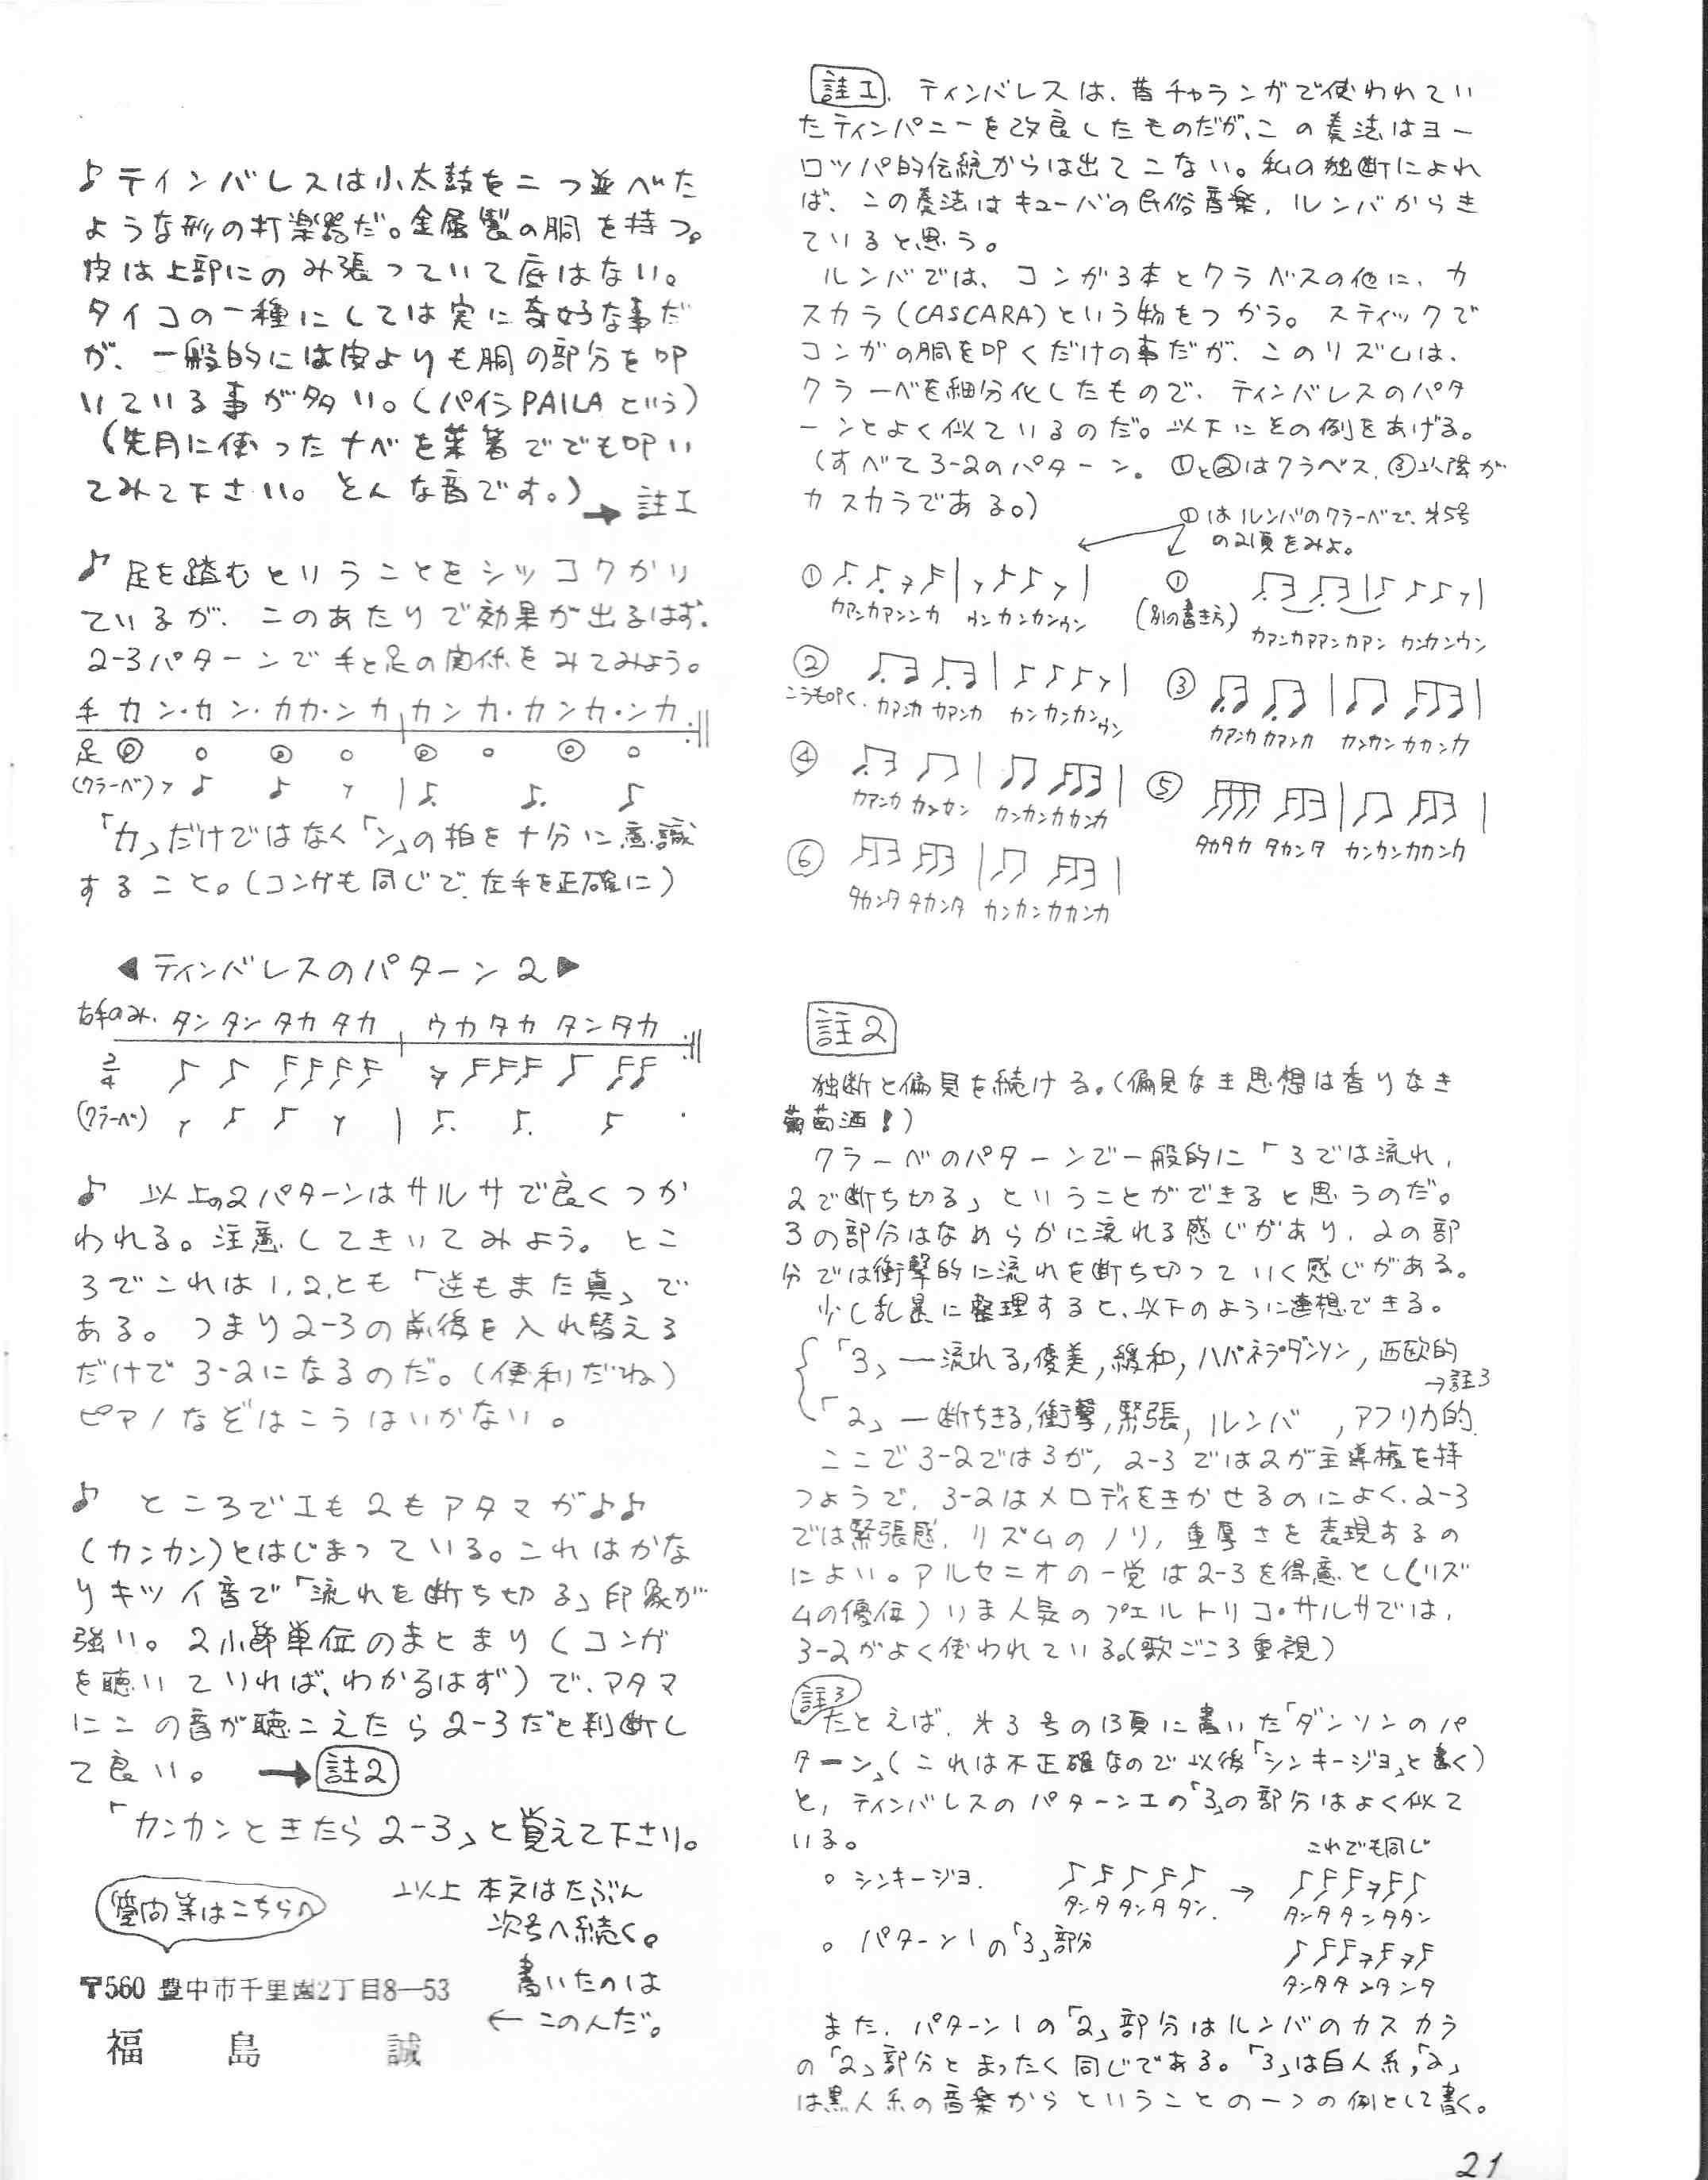 ♪ ティンバレスは小太鼓を二つ並べた
ような形の打楽器だ。金属製の胴を持つ。
皮は上部にのみ張っていて底はない。
タイコの一種にしては実に奇妙な事だ
が、一般的には皮よりも胴の部分を叩
いている事が多い。(パイラPAILAという)
(先月に使ったナベを菜箸ででも叩い
てみて下さい。そんな音です。)
→ 註1
♪ 足を踏むということをシツコクかい
ているが、このあたりで効果が出るはず。
2-3パターンで手と足の関係をみてみよう。
手 カン・カン・カカ・ンカ カンカ・カンカ・ンカ
足 ◎ ○ ◎ ○ ◎ ○ ◎ ○
(クラーベ)
「カ」だけではなく「ン」の拍を十分に意識
すること。(コンガも同じで、左手を正確に)
◀ ティンバレスのパターン2 ▶
右手のみ. タン タン タカ タカ ウカ タカ タン タカ
2/4
(クラーベ)
♪ 以上の2パターンはサルサで良くつか
われる。注意してきいてみよう。とこ
ろでこれは1,2,とも「逆もまた真」で
ある。つまり2-3の前後を入れ替える
だけで3-2になるのだ。(便利だね)
ピアノなどはこうはいかない。
♪ ところで1も2もアタマが♪♪
(カンカン)とはじまっている。これはかな
りキツイ音で「流れを断ち切る」印象が
強い。2小節単位のまとまり(コンガ
を聴いていれば、わかるはず)で、アタマ
にこの音が聴こえたら2-3だと判断し
て良い。 → 註2
「カンカンときたら2-3」と覚えて下さい。
質問等はこちらへ
以上 本文はたぶん
次号へ続く。
書いたのは
← このんだ。
〒560 豊中市千里園2丁目8—53
福島 誠
註1. ティンバレスは、昔チャランガで使われてい
たティンパニーを改良したものだが、この奏法はヨー
ロッパ的伝統からは出てこない。私の独断によれ
ば、この奏法はキューバの民俗音楽、ルンバからき
ていると思う。
ルンバでは、コンガ3本とクラベスの他に、カ
スカラ(CASCARA)という物をつかう。スティックで
コンガの胴を叩くだけの事だが、このリズムは、
クラーベを細分化したもので、ティンバレスのパタ
ーンとよく似ているのだ。以下にその例をあげる。
(すべて3-2のパターン。①と②はクラベス、③以降が
カスカラである。)
①はルンバのクラーベで、才5号
の21頁をみよ。
①
カアンカアンンカ ウンカンカンウン
① (別の書き方)
カアンカアアンカアン カンカンウン
② こうも叩く.
カアンカ カアンカ カンカンカンウン
③
カアンカ カアンカ カンカン カカンカ
④
カアンカ カンカン カンカンカカンカ
⑤
タカタカ タカンタ カンカンカカンカ
⑥
タカンタ タカンタ カンカンカカンカ
註2
独断と偏見を続ける。(偏見なき思想は香りなき
葡萄酒!)
クラーベのパターンで一般的に「3では流れ,
2で断ち切る」ということができると思うのだ。
3の部分はなめらかに流れる感じがあり、2の部
分では衝撃的に流れを断ち切っていく感じがある。
少し乱暴に整理すると、以下のように連想できる。
「3」—流れる,優美,緩和,ハバネラダンソン,西欧的
→註3
「2」—断ちきる,衝撃,緊張,ルンバ,アフリカ的.
ここで3-2では3が, 2-3では2が主導権を持
つようで、3-2はメロディをきかせるのによく、2-3
では緊張感、リズムのノリ, 重厚さを表現するの
によい。アルセニオの一党は2-3を得意とし(リズ
ムの優位)いま人気のプエルトリコ・サルサでは、
3-2がよく使われている。(歌ごころ重視)
註3
たとえば、才3号の13頁に書いた「ダンソンのパ
ターン」(これは不正確なので以後「シンキージョ」と書く)
と, ティンバレスのパターン1の「3」の部分はよく似て
いる。
○ シンキージョ.
タンタ タンタ タン.
→
これでも同じ
タンタ タンタタン
○ パターン1の「3」部分
タンタタ ンタ ンタ
また、パターン1の「2」部分はルンバのカスカラ
の「2」部分とまったく同じである。「3」は白人系,「2」
は黒人系の音楽からということの一つの例として書く。
21